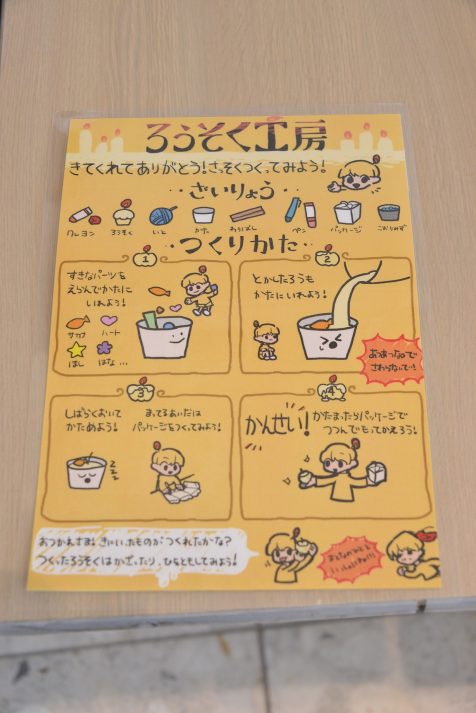 ろうそく工房
きてくれてありがとう!さっそくつくってみよう!
ざいりょう
クレヨン ろうそく いと かた わりばし ペン パッケージ こおりみず
つくりかた
1
すきなパーツを
えらんでかたに
いれよう!
サカナ ハート
ほし はな…
2
とかしたろうも
かたにいれよう!
あつあつなので
さわらないで!
3
しばらくおいて
かためよう!
まってるあいだは
パッケージをつくってみよう!
zzz
4
かんせい!
かたまったらパッケージで
つつんでもってかえろう!
おつかれさま!きにいったものがつくれたかな?
つくったろうそくはかざったり、ひをともしてみよう!
おとなのひとと
いっしょにね!!